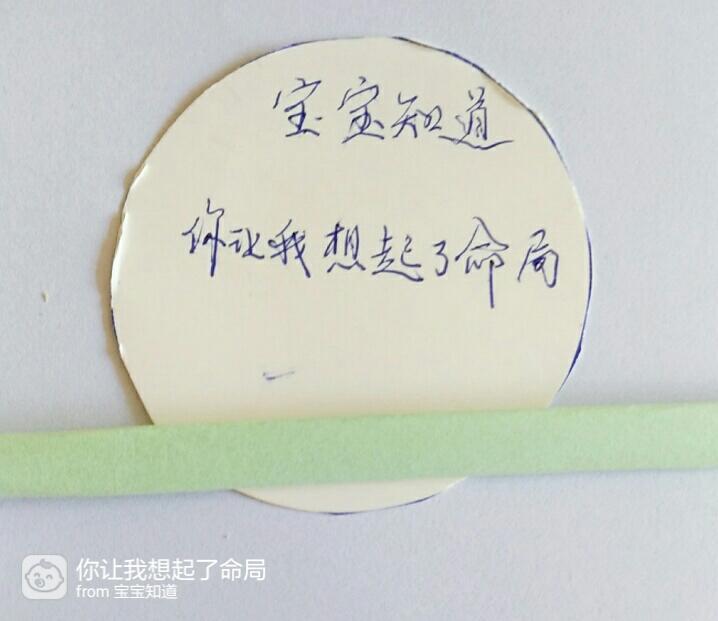 宝宝知道
你让我想起了命局
你让我想起了命局
from 宝宝知道